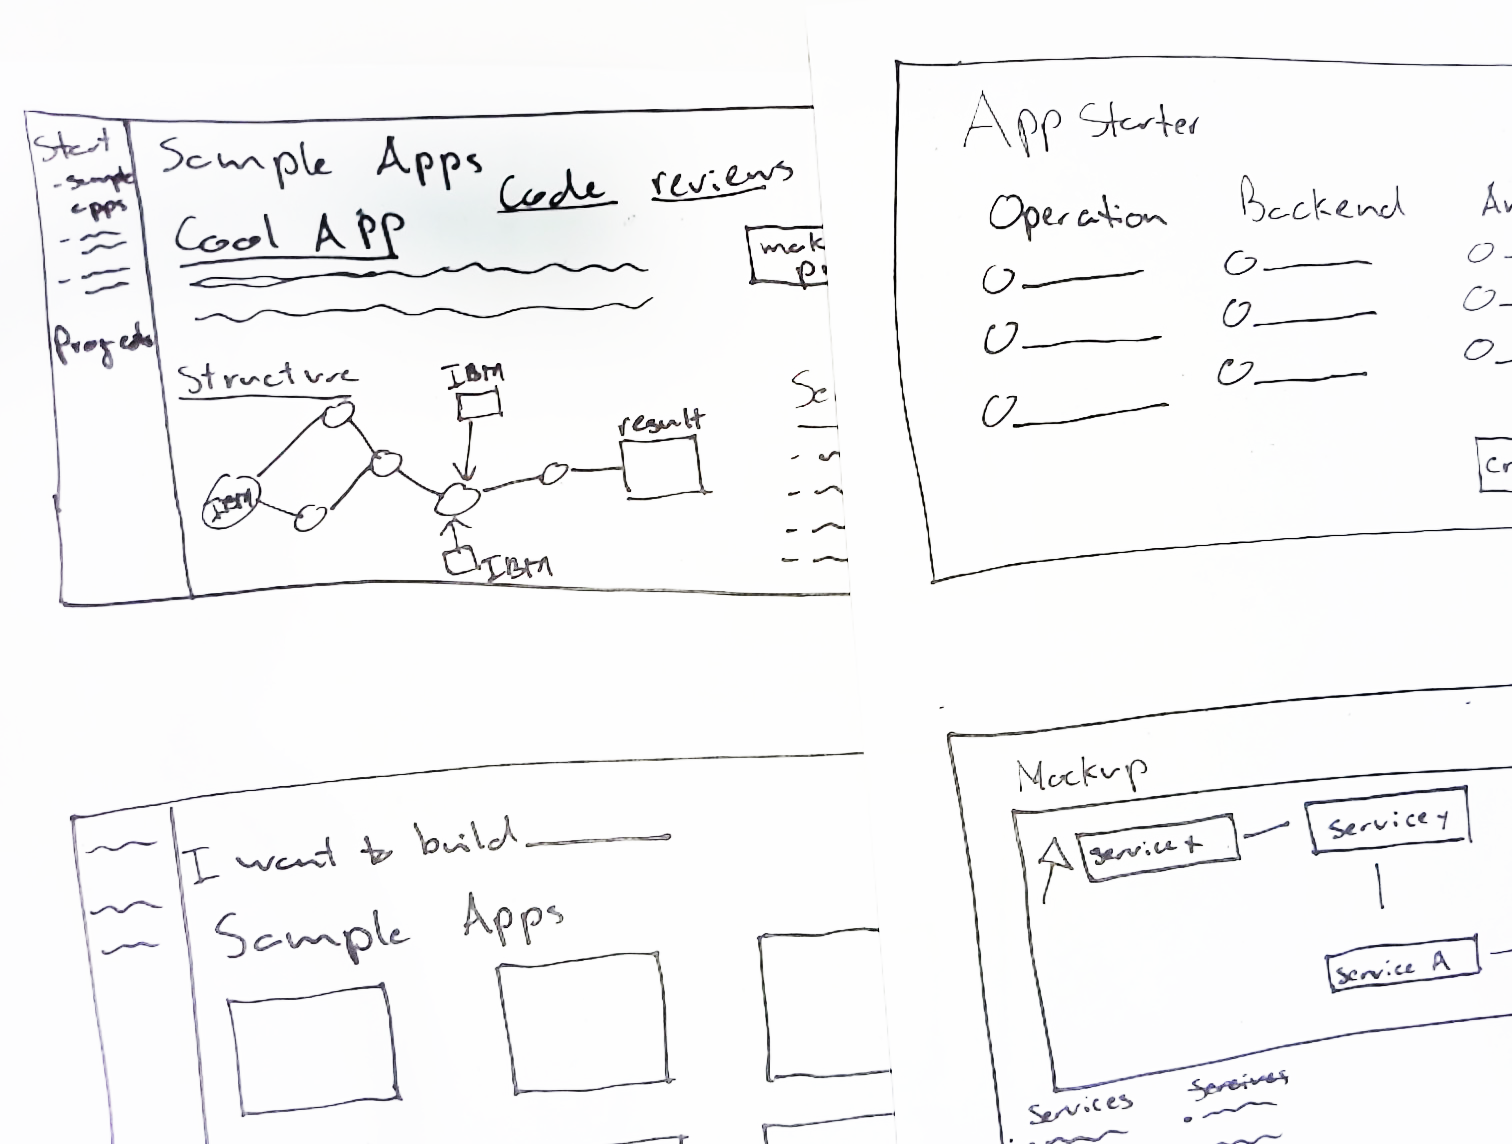 Start
- sample
apps
Projects
Sample Apps
Code reviews
Cool App
mak
Structure
IBM
result
IBM
IBM
App Starter
Operation
Backend
I want to build
Sample Apps
Mockup
service x
service y
service A
Services